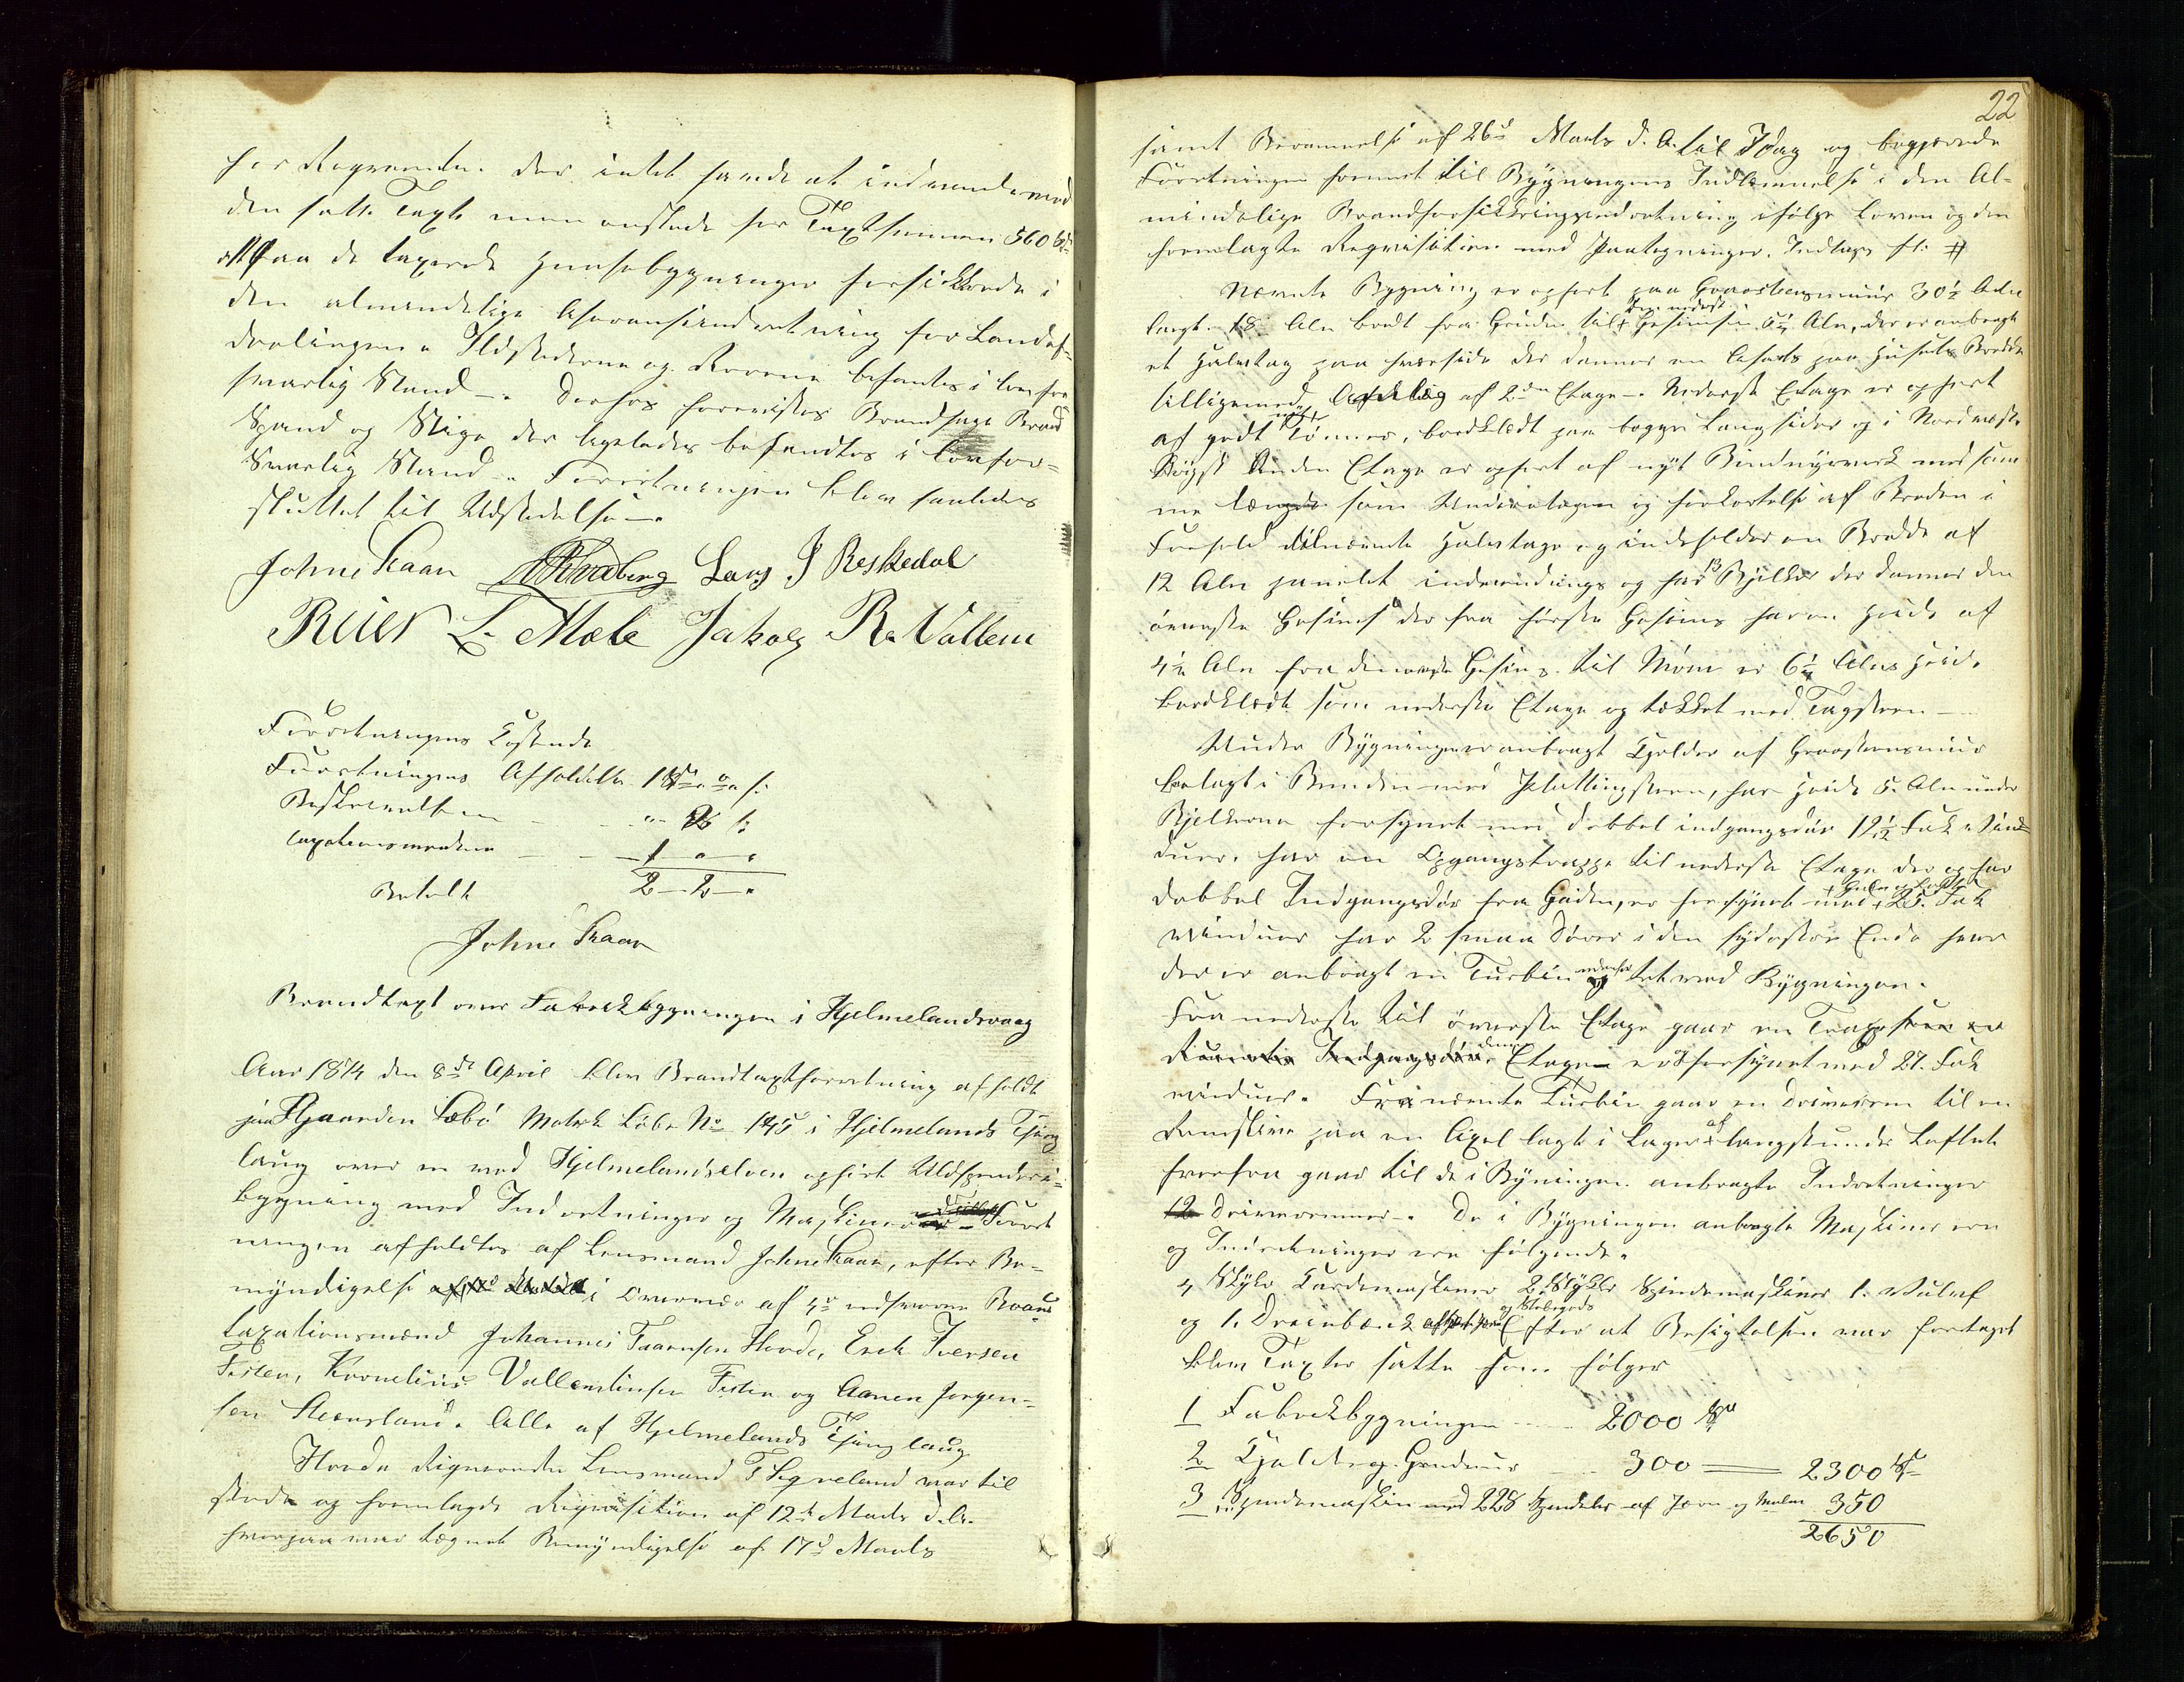 har Reqvirenten. Der intet havde at indvende mod
den satte Taxt men ønskede for Taxtsummen 560 Spd
at faa de taxerede Huusebygninger forsikkrede i
den almindelige Assuranseindretning for Landaf-
delingen. Ildstederne og Rørene befantes i forsvar
svarlig Stand. Derhos forevistes Brandhage Brand
Spand og Stige der ligeledes befandtes i forsvar=
svarlig Stand. Forretningen blev saaledes
sluttet til Udstedelse.
Johne Kaan Lars J Reskedal
Reier L. Mæle Jakob R. Vallem
Forretningens Kostende
Forretningens Afholdelse 1
Beskrivelsen
taxationsmændene 1
Betalt 2 - 2 -
Johne Kaan
Brandtaxt over Fabrikbygningen i Hjelmelandsvaag
Aar 1874 den 8de April blev Brandtaxtforretning afholdt
paa Gaarden Sæbø Matrik Løbe No 145 i Hjelmelands Thing
laug over en ved Hjelmelandselven opført Uldspinderi=
bygning med Indretninger og Maskiner Forret
ningen afholdtes af Lensmand Johne Kaan, efter Be=
myndigelse i Overvær af 4re edsvorne Brand
taxationsmænd Johannes Hovde, Erik Iversen
Fister, Kornelius Vallentinsen Fister og Aanen Jørgen=
sen Steensland. Alle af Hjelmelands Thinglaug
Hovde Reqvirenten Lensmand T Segneland var til
stede og fremlagde Reqvisition af 12te Marts d.A.
hvorpaa var tegnet Bemyndigelse af 17d Marts
22
samt Berammelse af 26d Marts d. A. til Idag og begjærede
Forretningen fremmet til Bygningens Indlemmelse i den Al-
mindelige Brandforsikkringsindretning ifølge Loven og den
fremlagte Reqvisition med Paategninger. Indtages sl. #
Nævnte Bygning er opført paa Graastensmuur 30½ Alen
langt 18 Alen bredt fra Grunden til den nederste Gesimse 5½ Alen, der er anbragt
et Halvtag paa hver side der danner en Afsats paa Husets Bredde
tilligemed Afdeling af 2den Etage. Nederste Etage er opført
af godt nyt Tømmer, bordklædt paa begge Langsider og i Nordvestre
Røgst Anden Etage er opført af nyt Bindingsverk med sam
me længde som Underetagen og forkortelse af Breden i
Forhold til nævnte Halvtage og indeholder en Bredde af
12 Alen panelet indvendings og har 13 Bjelker der danner den
øverste Gesims der fra første Gesims har en Høide af
4½ Alen fra den øverste Gesims til Mønn er 6¼ Alens Høide,
bordklædt som nederste Etage og tækket med Tagsteen
Under Bygningen er anbragt Kjelder af Graastensmuur
belagt i Bunden med Hellingsteen, har Høide 5. Alen under
Bjelkerne forsynet med dobbel indgangsdør 19½ Fak Vin=
duer. har en Opgangstrappe til nederste Etage der og har
dobbel Indgangsdør fra Gaden, er forsynet med 25. Fak
vinduer har 2 smaa Døre i den sydostre Ende hvor
der er anbragt en Turbin tet ved Bygningen.
Fra nederste til øverste Etage gaar en Trappe
denne Etagen er og forsynet med 27. Fak
vinduer. Fra nævnte Turbin gaar en Drivrem til en
Remskive paa en Axel lagt i Lager af langs under Loftet
hvorfra gaar til de i Bygningen anbragte Indretninger
12 Drivremmer. De i Bygningen anbragte Maskiner ere
og Indretninger ere følgende.
4 Stykr Kardemaskiner 2 Stykker Spindemaskiner 1. Vulf
og 1. Dreiebænk og Støbegods Efter at Besigtelsen var foretaget
blev Taxter satte som følger
1 Fabrikbygningen 2000 Spd
2 Kjelder og Grundmur 300 = 2300 Spd
3 Spindemaskin med 228 Spindeler af Jern og Malm 350
2650